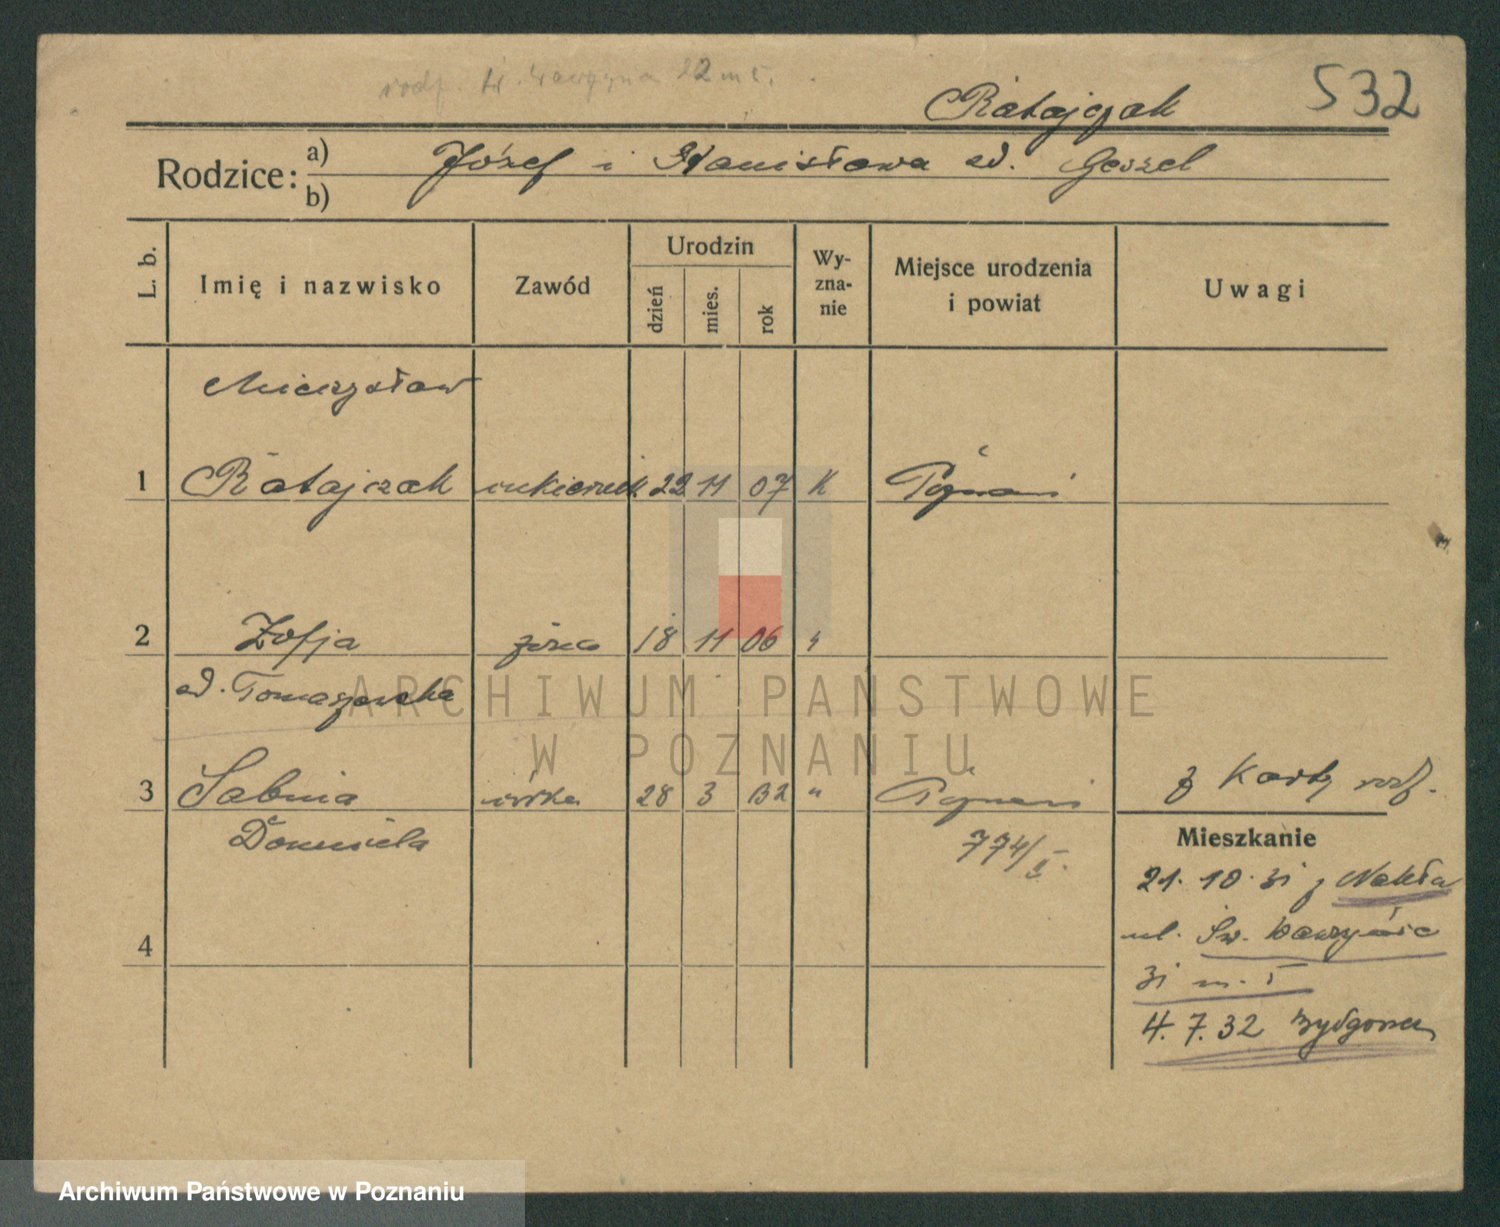 22 m 5.
532
Ratajczak
Rodzice: a) Józef i Stanisława zd. Geszel
b)
L. b.
Imię i nazwisko
Zawód
Urodzin
dzień
mies.
rok
Wy-
zna-
nie
Miejsce urodzenia
i powiat
Uwagi
Mieczysław
1 Ratajczak cukiernik 22 11 07 K Poznań
2 Zofja żona 18 11 06 "
zd. Tomaszewska
3 Sabina córka 28 3 32 " Poznań z Karty rodz.
Domicela 774/II.
Mieszkanie
21.10.31 z Nakła
ul. Św. Wawrzyńca
4
31 m. 5
4.7.32 Bydgoszcz
ARCHIWUM PAŃSTWOWE
W POZNANIU
Archiwum Państwowe w Poznaniu